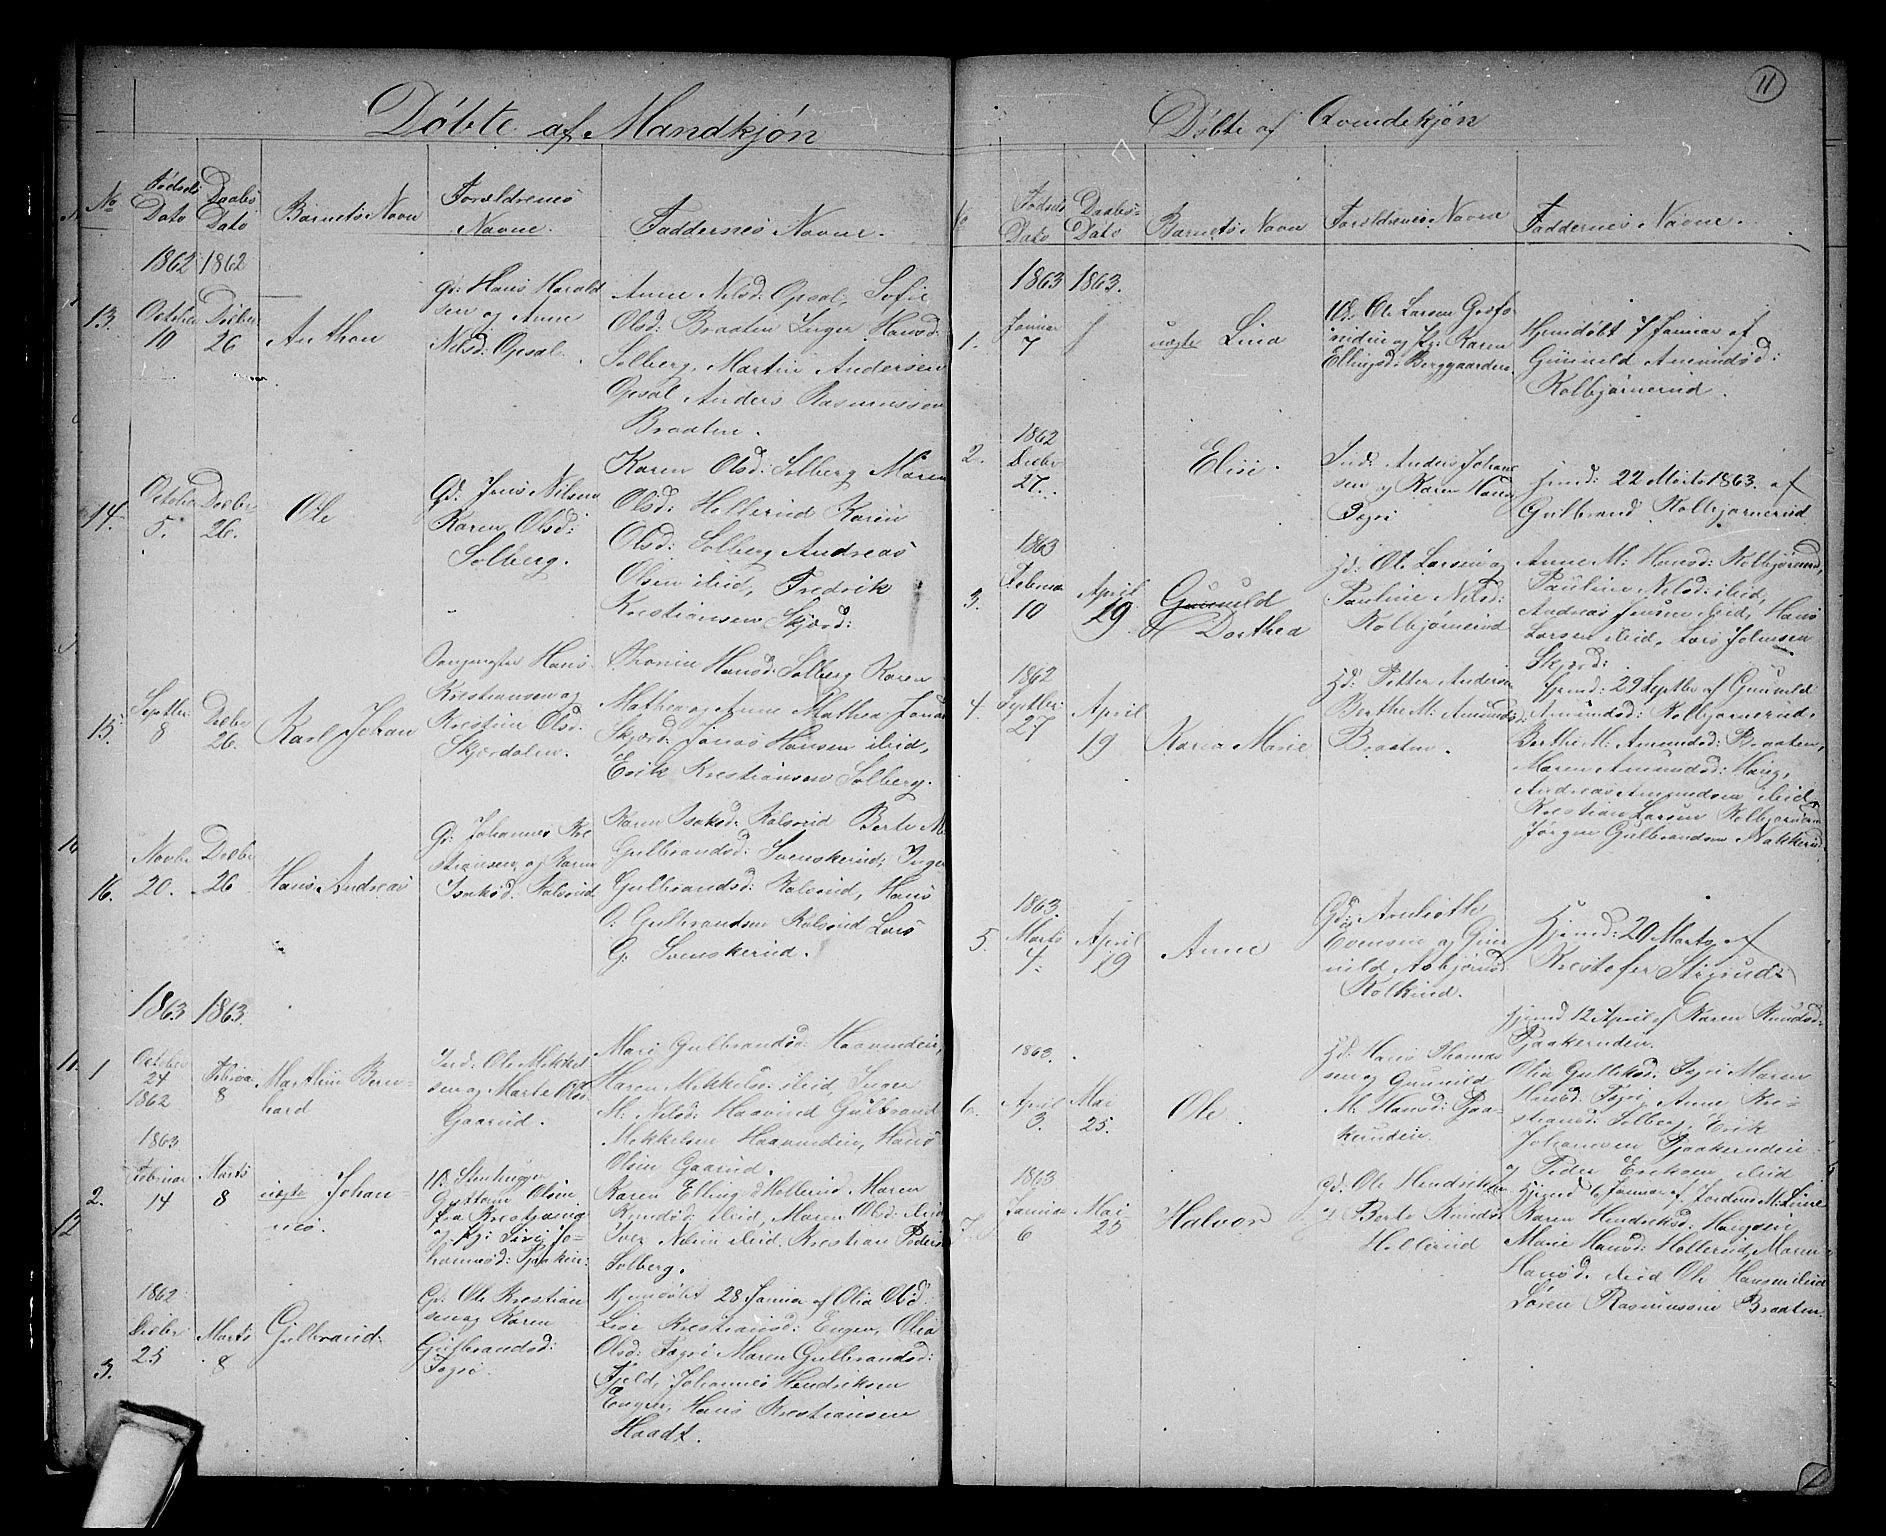 Døbte af Mandkjøn
No
Fødsels Dato
Daabs Dato
Barnets Navn
Forældrenes Navne.
Faddernes Navne.
1862 1862
13.
October 10
Decbr 26
Anthon
Gr: Hans Harald
sen og Anne
Nilsd: Opsal.
Anne Nilsd: Opsal, Sofie
Olsd: Braaten Inger Hansd:
Solberg, Martin Andersen
Opsal Anders Rasmussen
Braaten.
14.
October 5.
Decbr 26.
Ole
Gd: Jens Nilsen
Karen Olsd:
Solberg.
Karen Olsd: Solberg Maren
Olsd: Hollerud Karen
Olsd: Solberg Andreas
Olsen ibid, Fredrik
Kristiansen Skjærd:
15.
Septbr 8
Decbr 26.
Karl Johan
Hans
Kristiansen og
Kristine Olsd:
Skjærdalen.
Thonine Hansd: Solberg Karen
Mathea og Anne Mathea Jonsd:
Skjærd: Jonas Hansen ibid,
Erik Kristiansen Solberg.
16.
Novbr 20.
Decbr 26
Hans Andreas
Gr: Johannes Kri
stiansen og Karen
Isaksd. Kalsrud
Karen Isaksd: Kalsrud Berte M.
Gulbrandsd: Svenskerud, Inger
Gulbrandsd: Kalsrud, Hans
O. Gulbrandsen Kalsrud Lars
G. Svenskerud.
1863 1863.
1
October 24 1862
Februar 8
Marthin Bern-
hard
Ind: Ole Mikkel
sen og Marte Olsd
Gaarud.
Mari Gulbrandsd: Haavinden,
Maren Mikkelsd: ibid, Inger
M. Nilsd: Haavind Gulbrand
Mikkelsen Haavinden, Hans
Olsen Gaarud.
2.
1863 Februar 14
Marts 8
uægte Johan-
nes.
Uf: Stenhugger
Guttorm Olsen
fra Kristiania
og Pg: Siri Jo-
hannesd:
Karen Ellingsd Hollerud Maren
Knudsd: ibid, Maren Olsd: ibid
Iver Nilsen ibid. Kristian Peders
Solberg.
3.
1862 Decbr 25
Marts 8
Gulbrand.
Gr: Ole Kristian
sen og Karen
Gulbrandsd:
Togri
Hjemdøbt 28 Januar af Olia Olsd:
Lise Kristiansd: Engen, Olia
Olsd: Togri Maren Gulbrandsd:
Fjeld, Johannes Hendriksen
Engen, Hans Kristiansen
Haadt.
11
Døbte af Qvindekjøn
No
Fødsels Dato
Daabs- Dato
Barnets Navn
Forældrenes Navne
Faddernes Navne.
1863 1863.
1.
Januar 7
uægte Lina
Uf: Ole Larsen Grøfs
niden og Pg: Karen
Ellingsd: Berggaarden.
Hjemdøbt 7 Januar af
Gunild Amundsd:
Kolbjørnerud.
2.
1862 Decbr 27.
Elise.
Ind: Anders Johan
sen og Karen Hansd
Togri
Hjmd: 22 Marts 1863. af
Gulbrand Kolbjørnerud
3.
1863 Februar 10
April 19
Gunild
Dorthea
Hd: Ole Larsen og
Pauline Nilsd:
Kolbjørnerud
Anne M: Hansd: Kolbjørnrud,
Pauline Nilsd: ibid,
Andreas Jensen ibid, Hans
Larsen ibid, Lars Johnsen
Skjærd:
4.
1862 Septbr: 27
April 19
Karen Marie
Hd: Petter Anders
Berthe M: Amunds
Braaten.
Hjmd: 29 Septbr af Gunild
Amundsd: Kolbjørnerud,
Berthe M: Amundsd: Braaten,
Maren Amundsd: Haug,
Andreas Amundsen ibid
Kristian Larsen Kolbjørnerud
Jørgen Gulbrandsen Nakkerud
5.
1863. Marts 4.
April 19
Anne
Gd:
Evensen og Gun
nild Asbjørnsd
Kolkind.
Hjemd: 20 Marts af
Kristofer
6.
1863. April 3.
Mai 25.
Ole.
Hd: Hans Thomas
sen og Gunnild
M. Hansd: Pjaa-
kerudein.
Hjemd 12 April af Karen Knudsd:
Pjaakerudein.
Olia Gulliksd. Togri Maren
Hansd: Togri Anne Kri-
stiansd: Solberg, Erik
Johannesen Pjaakerudein
og Peder Eriksen ibid
7.
1863 Januar 6
Mai 25
Halvor
Gd. Ole Hendriksen
og Berte Knudsd
Hollerud
Hjemd 6 Januar af Jordem M. Line
Karen Hendriksd: Haugeri
Marie Hansd: Hollerud, Maren
Hansd. ibid Ole Hansen ibid
Søren Rasmussen Braaten.